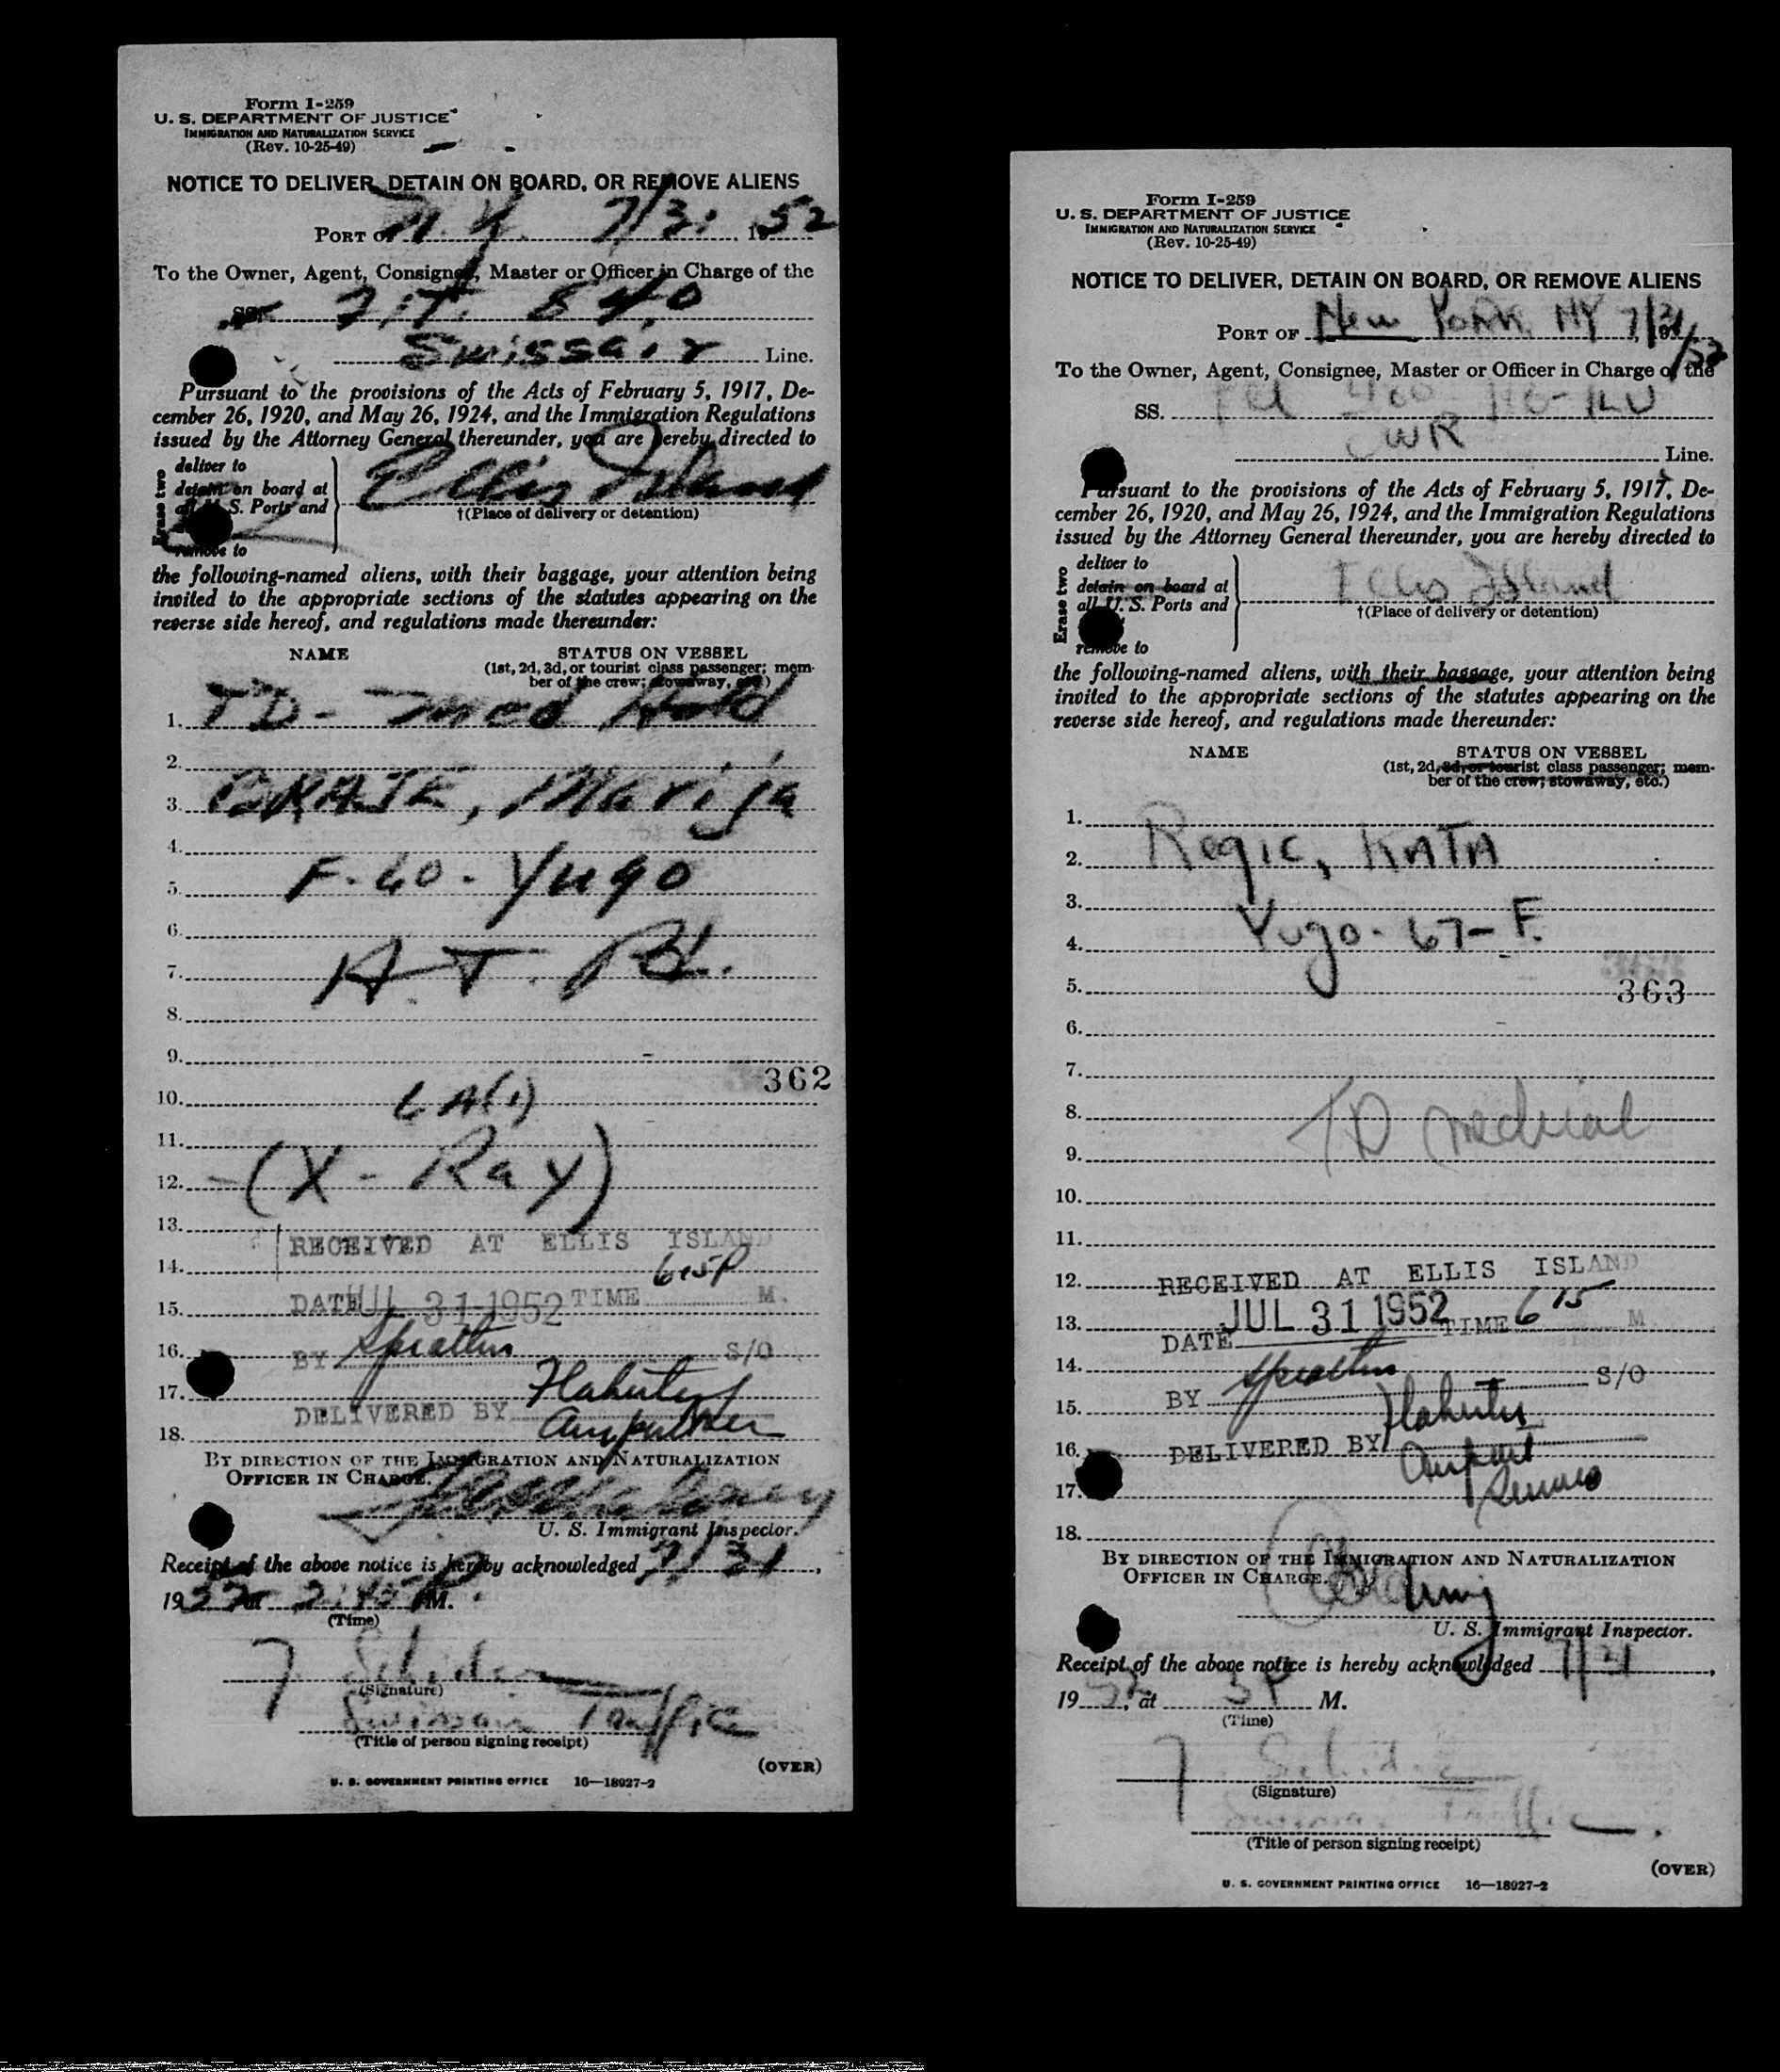 Form I-259
U. S. DEPARTMENT OF JUSTICE
IMMIGRATION AND NATURALIZATION SERVICE
(Rev. 10-25-49)
NOTICE TO DELIVER, DETAIN ON BOARD, OR REMOVE ALIENS
PORT OF N.Y. 7/31 1952
To the Owner, Agent, Consignee, Master or Officer in Charge of the
SS.
Swissair Line.
Pursuant to the provisions of the Acts of February 5, 1917, De-
cember 26, 1920, and May 26, 1924, and the Immigration Regulations
issued by the Attorney General thereunder, you are hereby directed to
Erase two
deliver to
detain on board at
all U. S. Ports and
remove to
Ellis Island
†(Place of delivery or detention)
the following-named aliens, with their baggage, your attention being
invited to the appropriate sections of the statutes appearing on the
reverse side hereof, and regulations made thereunder:
NAME STATUS ON VESSEL
(1st, 2d, 3d, or tourist class passenger; mem-
ber of the crew; stowaway, etc.)
1. TD - Med Hold
2.
3. Marija
4.
5. F. 60. Yugo
6.
7.
8.
9.
362
10.
11.
12. (X-Ray)
13.
RECEIVED AT ELLIS ISLAND
14.
15. DATE JUL 31 1952 TIME 615P M.
16. BY S/O
17.
DELIVERED BY
18.
BY DIRECTION OF THE IMMIGRATION AND NATURALIZATION
OFFICER IN CHARGE.
U. S. Immigrant Inspector.
Receipt of the above notice is hereby acknowledged 7/31,
1952 at 2:45 P M.
(Time)
(Signature)
Swissair Traffic
(Title of person signing receipt)
(OVER)
U. S. GOVERNMENT PRINTING OFFICE 16—18927-2
Form I-259
U. S. DEPARTMENT OF JUSTICE
IMMIGRATION AND NATURALIZATION SERVICE
(Rev. 10-25-49)
NOTICE TO DELIVER, DETAIN ON BOARD, OR REMOVE ALIENS
PORT OF New York NY 7/31/52
To the Owner, Agent, Consignee, Master or Officer in Charge of the
SS.
SWR Line.
Pursuant to the provisions of the Acts of February 5, 1917, De-
cember 26, 1920, and May 26, 1924, and the Immigration Regulations
issued by the Attorney General thereunder, you are hereby directed to
Erase two
deliver to
detain on board at
all U. S. Ports and
remove to
Ellis Island
†(Place of delivery or detention)
the following-named aliens, with their baggage, your attention being
invited to the appropriate sections of the statutes appearing on the
reverse side hereof, and regulations made thereunder:
NAME STATUS ON VESSEL
(1st, 2d, 3d, or tourist class passenger; mem-
ber of the crew; stowaway, etc.)
1.
2. Regic, KATA
3.
4. Yugo - 67 - F.
5. 363
6.
7.
8. TD medical
9.
10.
11.
12. RECEIVED AT ELLIS ISLAND
13. DATE JUL 31 1952 TIME 615 M
14.
BY S/O
15.
16. DELIVERED BY
Airport
17.
18.
BY DIRECTION OF THE IMMIGRATION AND NATURALIZATION
OFFICER IN CHARGE.
U. S. Immigrant Inspector.
Receipt of the above notice is hereby acknowledged 7/31,
1952, at 3P M.
(Time)
(Signature)
Traffic
(Title of person signing receipt)
(OVER)
U. S. GOVERNMENT PRINTING OFFICE 16—18927-2